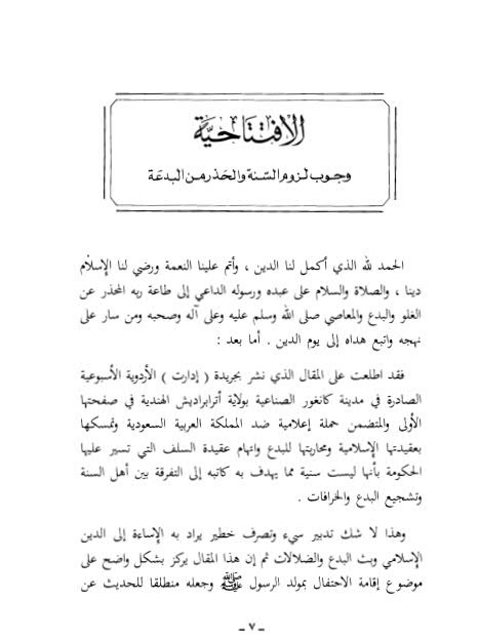 الافتتاحية
وجوب لزوم السنة والحذر من البدعة
الحمد لله الذي أكمل لنا الدين ، وأتم علينا النعمة ورضي لنا الإسلام
دينا ، والصلاة والسلام على عبده ورسوله الداعي إلى طاعة ربه المحذر عن
الغلو والبدع والمعاصي صلى الله وسلم عليه وعلى آله وصحبه ومن سار على
نهجه واتبع هداه إلى يوم الدين . أما بعد :
فقد اطلعت على المقال الذي نشر بجريدة ( إدارت ) الأردوية الأسبوعية
الصادرة في مدينة كانغور الصناعية بولاية أترابراديش الهندية في صفحتها
الأولى والمتضمن حملة إعلامية ضد المملكة العربية السعودية وتمسكها
بعقيدتها الإسلامية ومحاربتها للبدع واتهام عقيدة السلف التي تسير عليها
الحكومة بأنها ليست سنية مما يهدف به كاتبه إلى التفرقة بين أهل السنة
وتشجيع البدع والخرافات .
وهذا لا شك تدبير سيء وتصرف خطير يراد به الإساءة إلى الدين
الإسلامي وبث البدع والضلالات ثم إن هذا المقال يركز بشكل واضح على
موضوع إقامة الاحتفال بمولد الرسول ﷺ وجعله منطلقا للحديث عن
ـ ٧ ـ